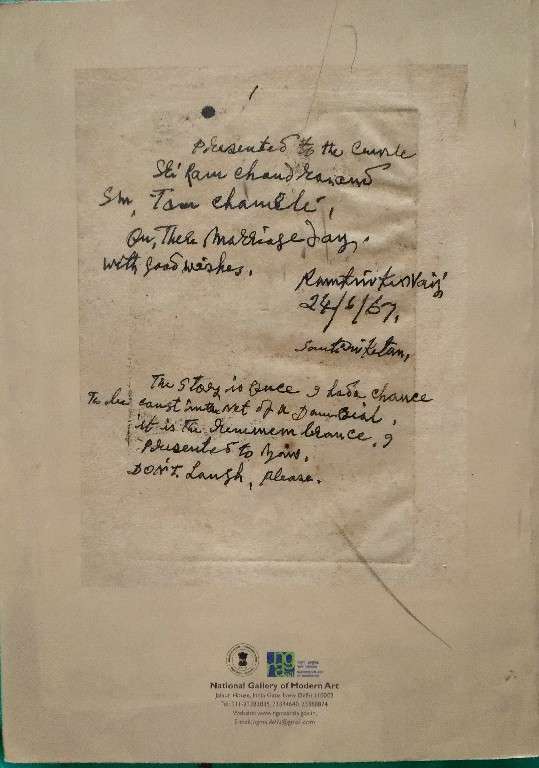 Presented to the Couple
Sri Ram Chandra and
Sm, Tara Chameli,
On, There Marriage Day,
with good wishes.
Ramkinker Vaij
24/6/67,
Santiniketan,
The story is Once I had a chance
To be caust in the net of a
it is the Rememembrance, I
Presented to you.
DON'T. Laugh, please.
National Gallery of Modern Art
Jaipur House, India Gate, New Delhi 110003